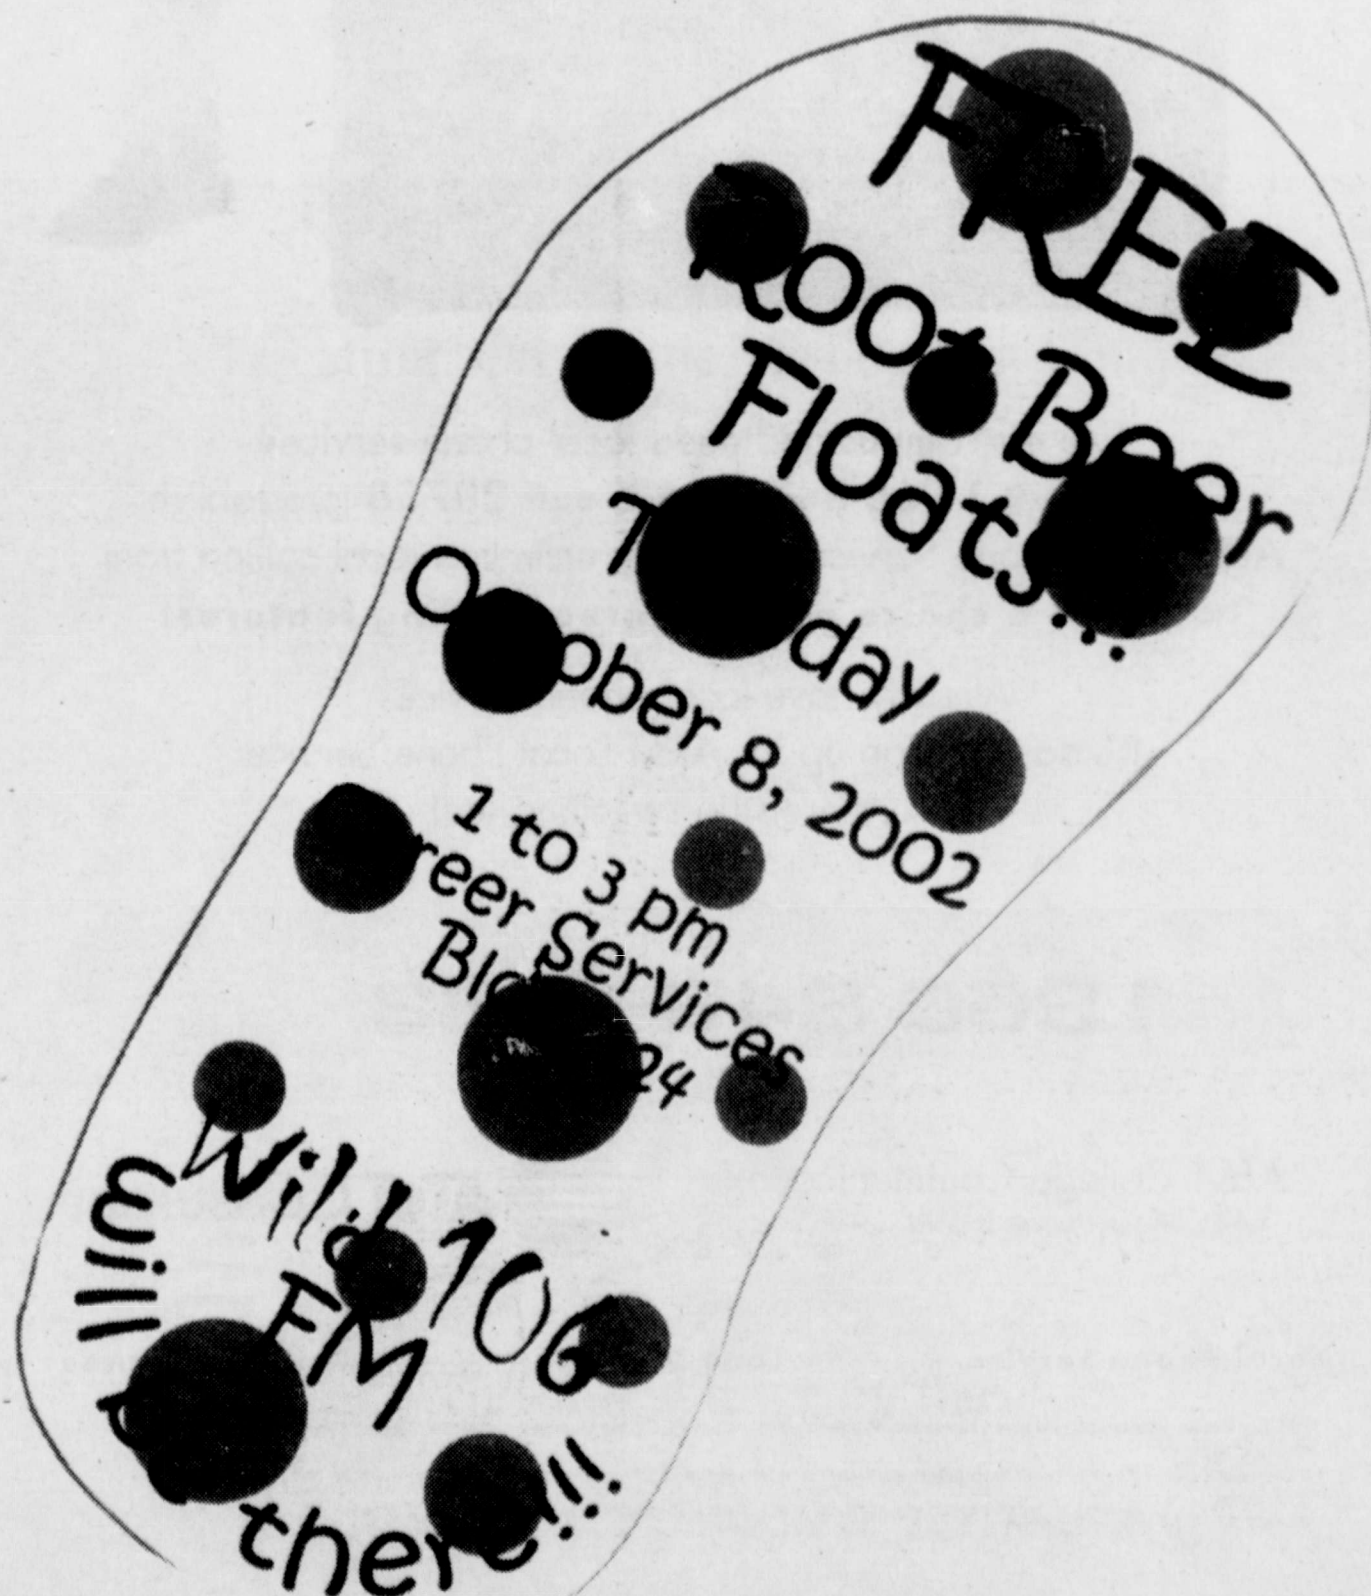 FREE
Root Beer
Floats...
October 8, 2002
1 to 3 pm
Career Services
24
Wild 106
FM
will
there!!!